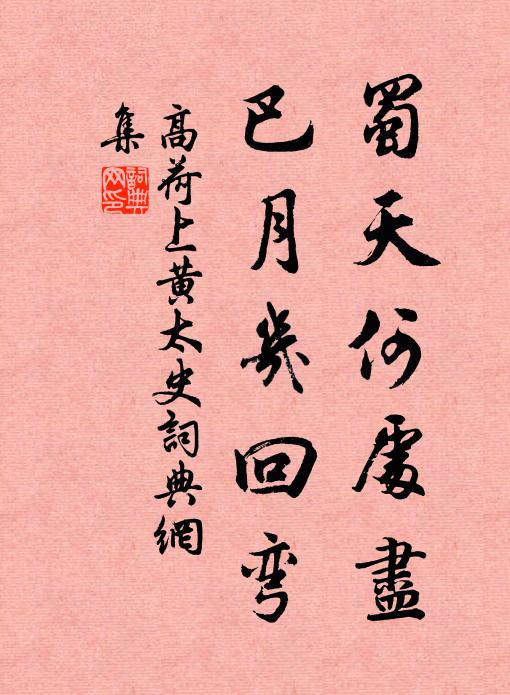 蜀天何處盡
巴月幾回弯
高荷上黄太史詞典網
集
詞典
网印